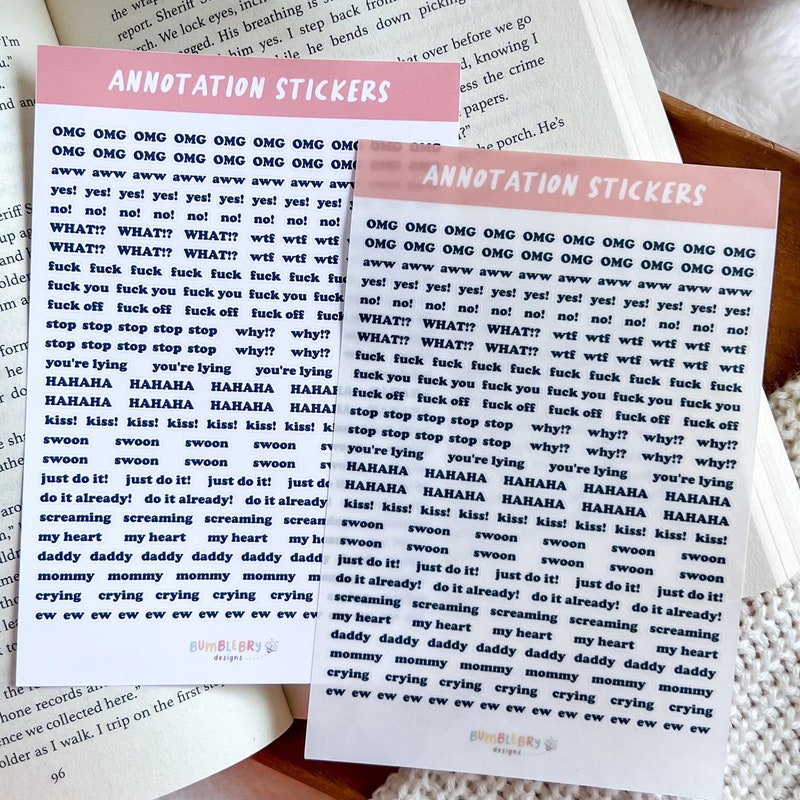 the wrap
report. Sheriff S
porch. We lock eyes, inch
him yes. I step back from
while he bends down picking
that over before we go
knowing I
ess the crime
papers.
the porch. He's
ANNOTATION STICKERS
OMG OMG OMG OMG OMG OMG OMG OMG
OMG OMG OMG OMG OMG OMG OMG OMG
aww aww aww aww aww aww aww aww
yes! yes! yes! yes! yes! yes! yes! yes!
no! no! no! no! no! no! no! no!
WHAT!? WHAT!? WHAT!? wtf wtf wtf
WHAT!? WHAT!? WHAT!? wtf wtf wtf
fuck fuck fuck fuck fuck fuck fuck
fuck you fuck you fuck you fuck you fuck
fuck off fuck off fuck off fuck off fuc
stop stop stop stop stop why!? why!?
stop stop stop stop stop why!? why!?
you're lying you're lying you're lying
HAHAHA HAHAHA HAHAHA HAHA
HAHAHA HAHAHA HAHAHA HAHA
kiss! kiss! kiss! kiss! kiss! kiss! kiss! ki
swoon swoon swoon swoon
swoon swoon swoon swoon
just do it! just do it! just do it! just do
do it already! do it already! do it already!
screaming screaming screaming screa
my heart my heart my heart my he
daddy daddy daddy daddy daddy dad
mommy mommy mommy mommy m
crying crying crying crying crying
ew ew ew ew ew ew ew ew ew ew ew
BUMBLEBRY
designs
ANNOTATION STICKERS
OMG OMG OMG OMG OMG OMG OMG OMG OMG OMG
OMG OMG OMG OMG OMG OMG OMG OMG OMG OMG
aww aww aww aww aww aww aww aww aww aww
yes! yes! yes! yes! yes! yes! yes! yes! yes! yes! yes!
no! no! no! no! no! no! no! no! no! no! no!
WHAT!? WHAT!? WHAT!? wtf wtf wtf wtf wtf
WHAT!? WHAT!? WHAT!? wtf wtf wtf wtf wtf
fuck fuck fuck fuck fuck fuck fuck fuck fuck fuck
fuck you fuck you fuck you fuck you fuck you fuck you
fuck off fuck off fuck off fuck off fuck off fuck off
stop stop stop stop stop why!? why!? why!? why!?
stop stop stop stop stop why!? why!? why!? why!?
you're lying you're lying you're lying you're lying
HAHAHA HAHAHA HAHAHA HAHAHA HAHAHA
HAHAHA HAHAHA HAHAHA HAHAHA HAHAHA
kiss! kiss! kiss! kiss! kiss! kiss! kiss! kiss! kiss! kiss!
swoon swoon swoon swoon swoon swoon
swoon swoon swoon swoon swoon swoon
just do it! just do it! just do it! just do it! just do it!
do it already! do it already! do it already! do it already!
screaming screaming screaming screaming screaming
my heart my heart my heart my heart my heart
daddy daddy daddy daddy daddy daddy daddy daddy daddy
mommy mommy mommy mommy mommy mommy
crying crying crying crying crying crying crying
ew ew ew ew ew ew ew ew ew ew ew ew ew ew ew
BUMBLEBRY
designs
hone records and
nce we collected here."
older as I walk. I trip on the first step
96